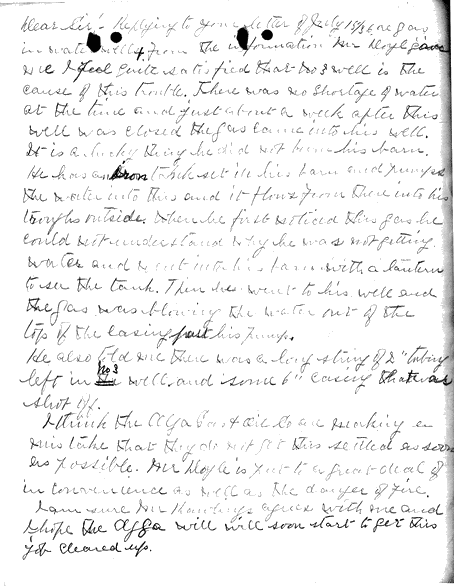 Dear Sir:- Replying to your letter of July 15/36 re gas
in water well, from the information Mr Doyle gave
me I feel quite satisfied that No 3 well is the
cause of this trouble. There was no shortage of water
at the time and just about a week after this
well was closed the gas came into his well.
It is a lucky thing he did not burn his barn.
He has an iron tank set in his barn and pumps
the water into this and it flows from there into his
troughs outside. When he first noticed this gas he
could not understand why he was not getting
water and went into his barn with a lantern
to see the tank. Then he went to his well and
the gas was blowing the water out of the
top of the casing past his pump.
He also told me there was a long string of 2" tubing
left in No 3 well and some 6" casing that was
shot off.
I think the Agga Gas & Oil Co are making a
mistake that they do not get this settled as soon
as possible. Mr Doyle is put to a great deal of
inconvenience as well as the danger of fire.
I am sure Mr Rawlings agrees with me and
I hope the Agga will will soon start to get this
job cleared up.